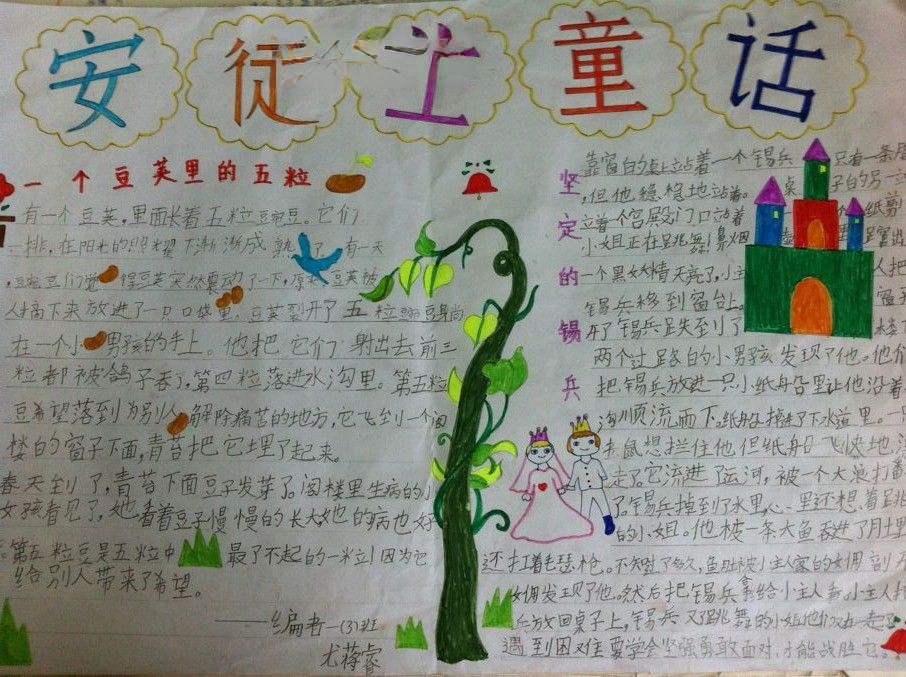 安徒生童话
一个豆荚里的五粒
有一个豆荚,里面长着五粒豌豆。它们
一排,在阳光的照耀下渐渐成熟了。有一天
,豌豆们觉得豆荚突然震动了一下,原来豆荚被
人摘下来放进了一只口袋里,豆荚裂开了五粒豌豆身尚
在一个小男孩的手上。他把它们射出去前三
粒都被鸽子吞了,第四粒落进水沟里。第五粒
豆希望落到为别人解除痛苦的地方,它飞到一个阁
楼的窗子下面,青苔把它埋了起来。
春天到了,青苔下面豆子发芽了。阁楼里生病的小
女孩看见了,她看着豆子慢慢的长大她的病也好
第五粒豆是五粒中最了不起的一粒!因为它
给别人带来了希望。
——编者一(3)班
尤蒋睿
坚定的锡兵
靠窗白的桌上站着一个锡兵 只有一条
,但他稳稳地站着。桌子白的另一
立着个宫殿,门口站着 纸剪
小姐正在跳舞!鼻烟
一个黑妖精天亮了,小主人把
锡兵移到窗台。
开了锡兵跌到了
两个过路的小男孩发现了他。他们
把锡兵放进一只小纸船里让他沿着
沟顺流而下。纸船掉进了下水道里。一只
鼠想拦住他但纸船飞快地
走了。它流进了运河,被一个大浪打着
了。锡兵掉到了水里,心里还想着跳
的小姐。他被一条大鱼吞进了肚里
还打着毛瑟枪。不知过了多久,鱼肚被小主人家的女佣剖
女佣发现了他。然后把锡兵拿给小主人看小主人把
兵放回桌子上,锡兵又跳舞的小姐他们又在一起
遇到困难要学会坚强勇敢面对,才能战胜它。